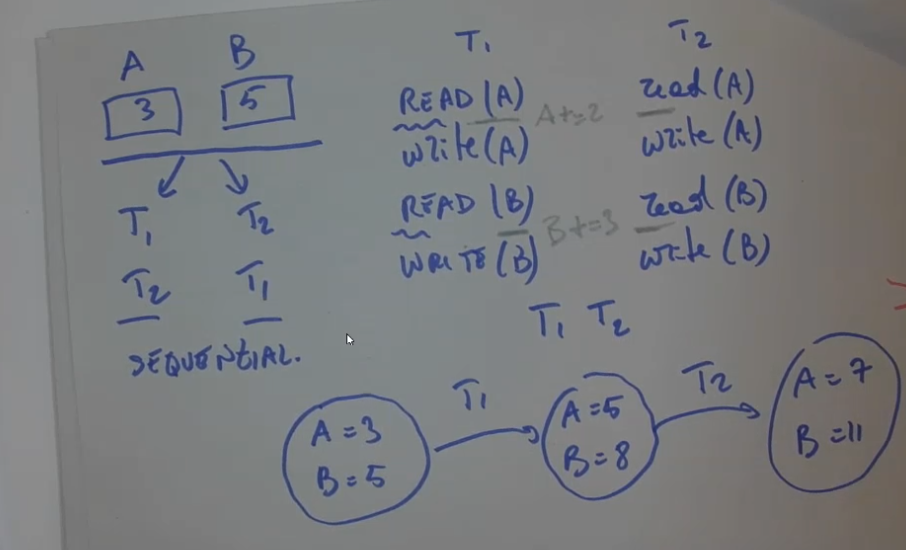 A B
3 5
T1 T2
T2 T1
SEQUENTIAL.
T1
READ (A)
A+=2
write (A)
READ (B)
B+=3
WRITE (B)
T2
read (A)
write (A)
read (B)
write (B)
T1 T2
A=3
B=5
T1
A=5
B=8
T2
A=7
B=11